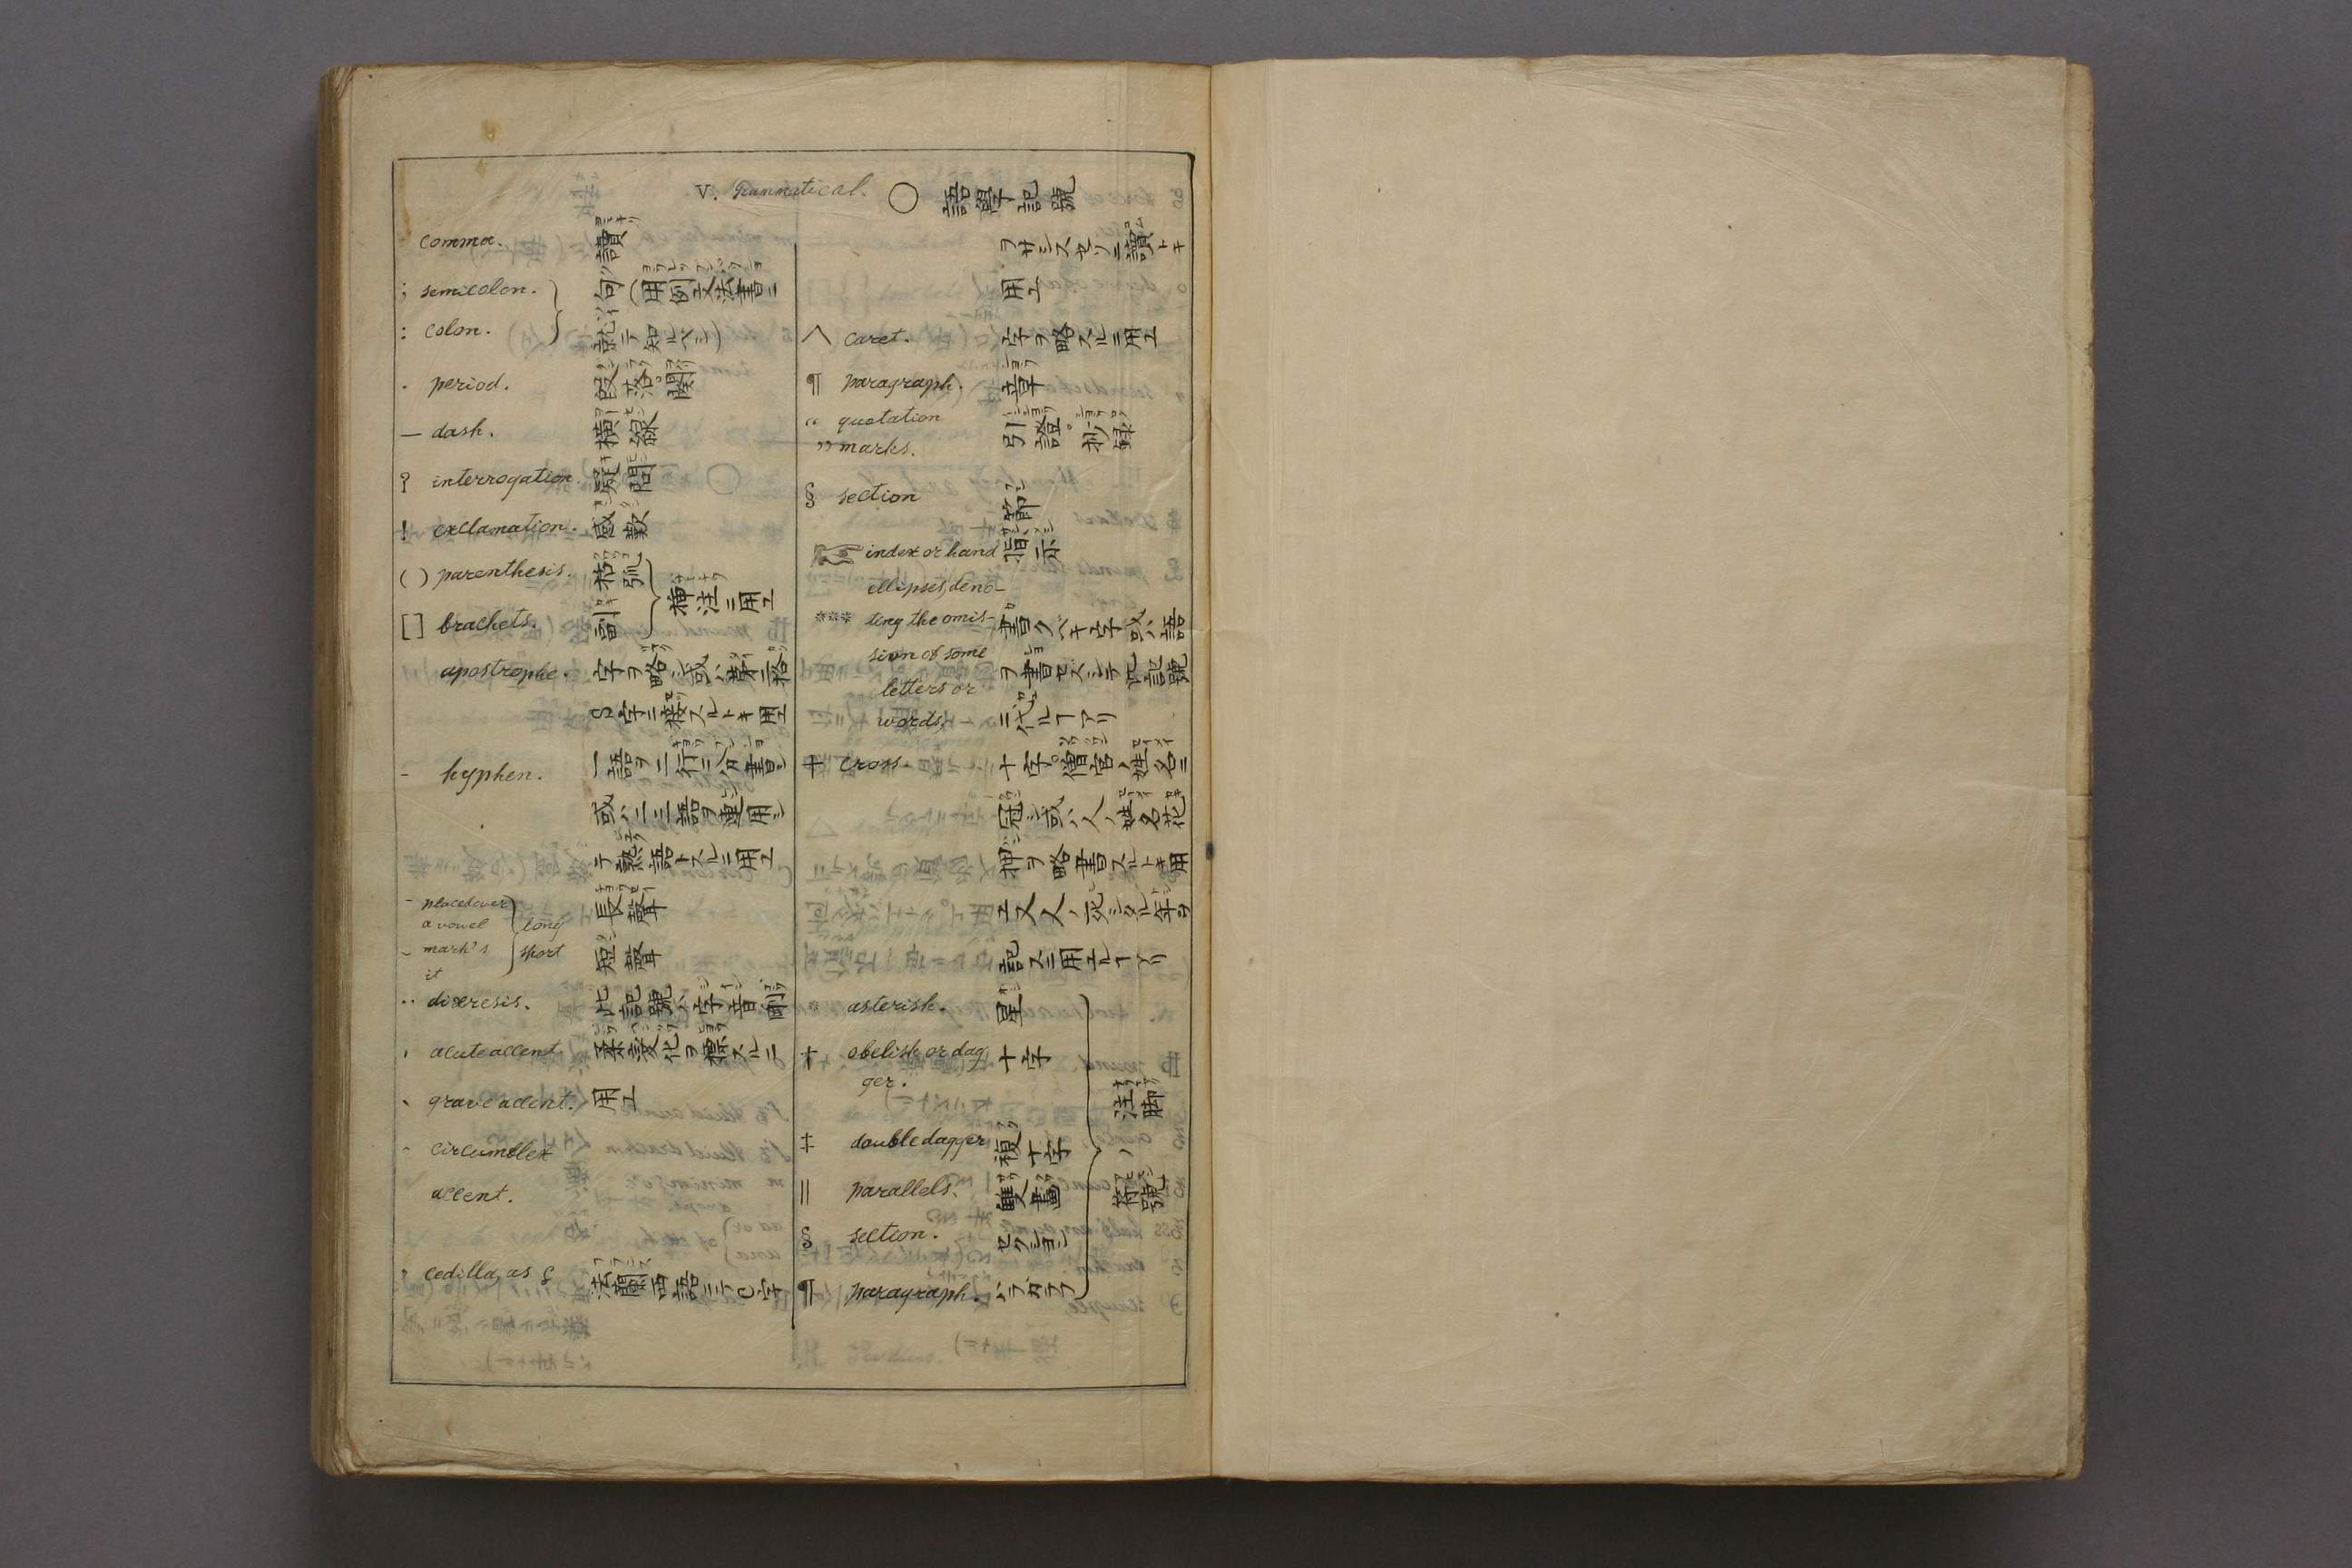 V. Grammatical. ○ 語學記號
comma. 讀
; semicolon. 句(用例文法書ニ
: colon. 就テ知ルベシ)
. period. 段落。關
— dash. 橫線
? interrogation. 疑問
! exclamation. 感歎
( ) parenthesis. 括弧
[ ] brackets.
挿注ニ用エ
apostrophe. 字ヲ略シ或ハ第二格
S字ニ接スルトキ用エ
- hyphen. 一語ヲ二行ニ分書シ
或ハ二三語ヲ連用シ
テ熟語トスルニ用エ
- placed over
a vowel long 長聲
mark's short 短聲
it
·· dieresis. 此記號ハ字音剛
acute accent. 柔変化ヲ標スルニ
grave accent. 用エ
circumflex
accent.
cedilla, as ç 法蘭西語ニテC字
ヲサシスセソニ讀トキ
用エ
^ caret. 字ヲ略スルニ用エ
¶ paragraph. 章
“ quotation 引證。抄録
” marks.
§ section 節
☞ index or hand 指示
ellipses, deno-
*** ting the omis- 書クベキ字或ハ語
sion of some ヲ書セズシテ此記號
letters or
words, ニ代ルヿアリ
† cross. 十字。僧官ノ姓名ニ
冠シ或ハ人ノ姓名花
押ヲ略書スルトキ用
エ又人ノ死シタル年ヲ
記スニ用エルヿアリ
* asterisk. 星
† obelisk or dag 十字
ger.
‡ double dagger 複十字
|| parallels. 雙畫
§ section. セクション
¶ paragraph. パラガラフ
注脚ノ符號